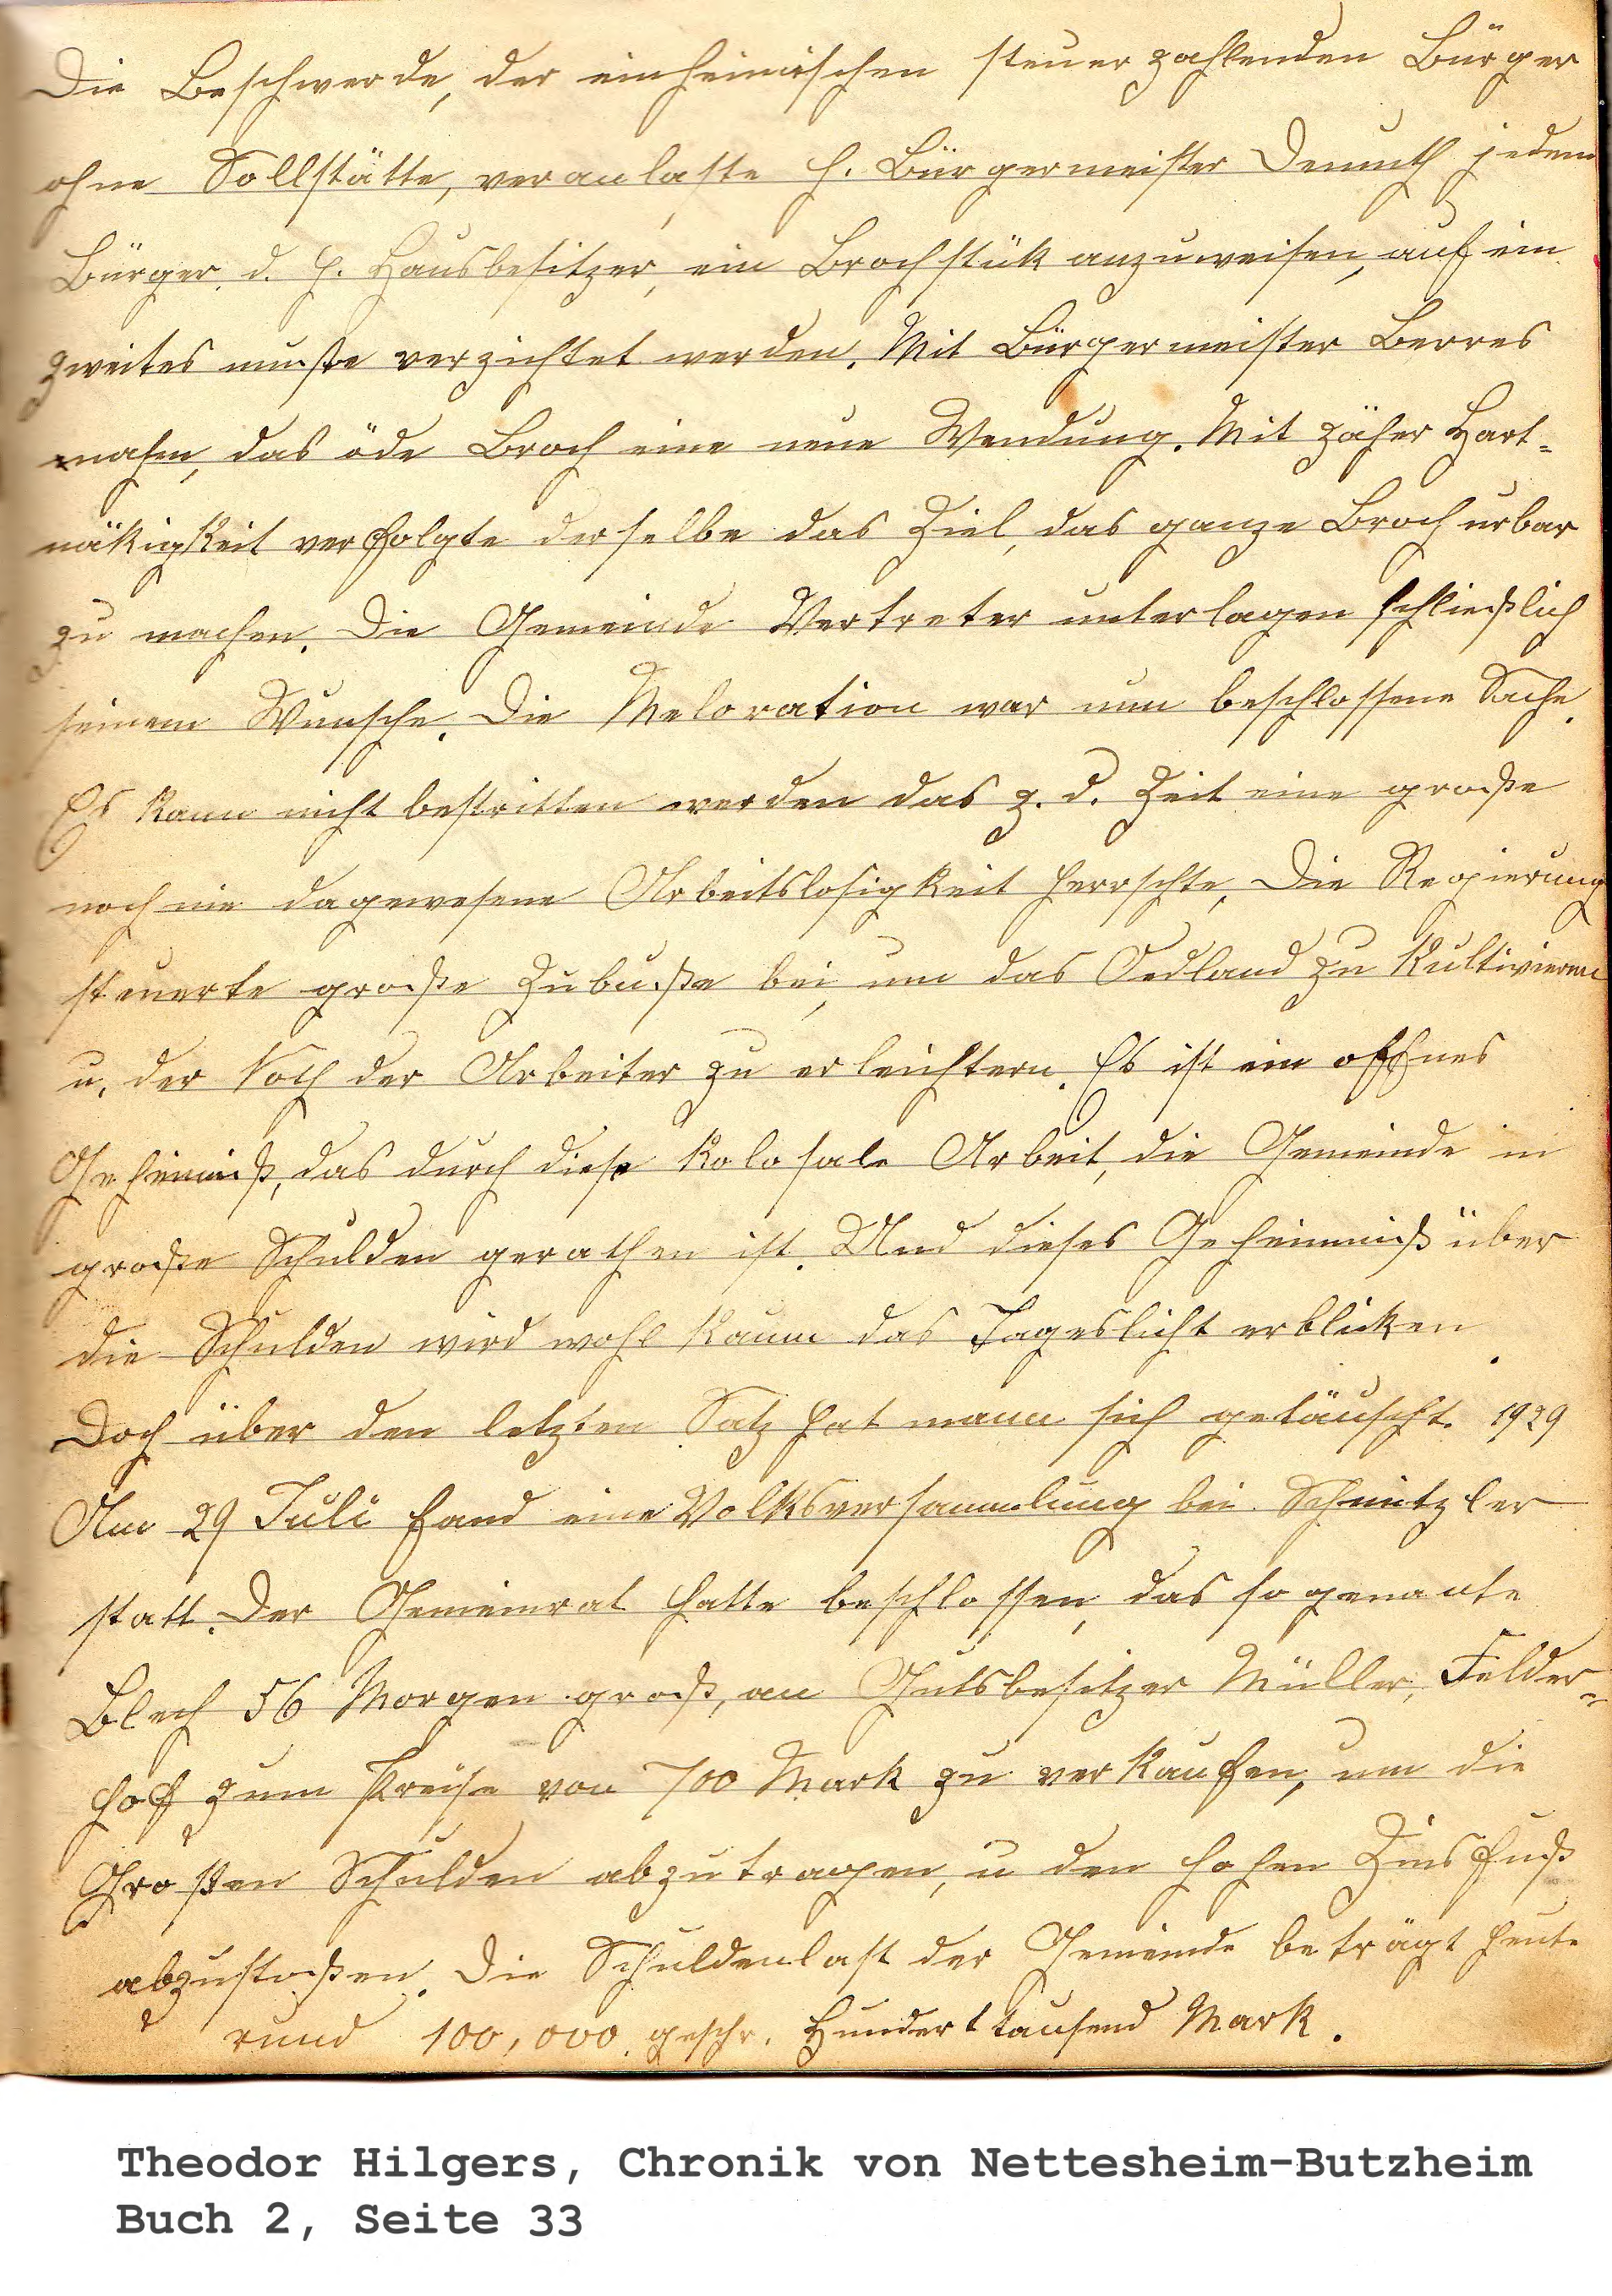 Die Beschwerde, der einheimischen steuerzahlenden Bürger
ohne Sollstätte, veranlaste H. Bürgermeister Demuth jedem
Bürger, d. h. Hausbesitzer, ein Brochstük anzuweisen, auf ein
zweites muste verzichtet werden. Mit Bürgermeister Berres
nahm, das öde Broch eine neue Wendung. Mit zäher Hart-
näkigkeit verfolgte derselbe das Ziel, das ganze Broch urbar
zu machen. Die Gemeinde Vertreter unterlagen schließlich
seinem Wunsche. Die Meloration war nun beschlossene Sache.
Es kann nicht bestritten werden das z. d. Zeit eine große
noch nie dagewesene Arbeitslosigkeit herrschte, Die Regierung
steuerte große Zubuße bei, um das Oedland zu kultivieren
u. der Noth der Arbeiter zu erleichtern. Es ist ein offnes
Geheimniß, das durch diese kolosale Arbeit, die Gemeinde in
große Schulden gerathen ist. Und dieses Geheimniß über
die Schulden wird wohl kaum das Tageslicht erbliken.
Doch über den letzten Satz hat mann sich getäuscht. 1929
Am 29 Juli fand eine Volksversammlung bei Schmitzler
statt. Der Gemeinrat hatte beschlossen, das sogenante
Blech 56 Morgen groß, an Gutsbesitzer Müller, Felder-
hof zum Preise von 700 Mark zu verkaufen, um die
Großen Schulden abzutragen, u den hohen Zinsfuß
abzustoßen. Die Schuldenlast der Gemeinde beträgt heute
rund 100,000 geschr. Hundert tausend Mark.
Theodor Hilgers, Chronik von Nettesheim-Butzheim
Buch 2, Seite 33